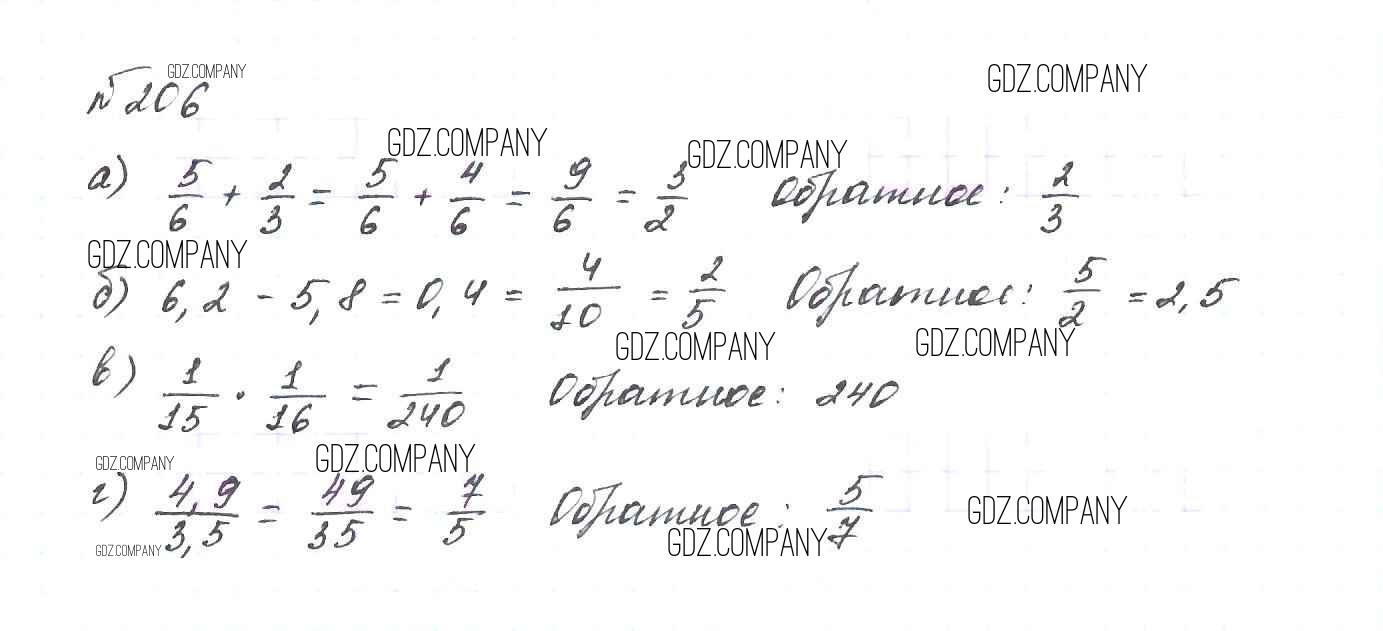 GDZ.COMPANY
GDZ.COMPANY
№ 206
GDZ.COMPANY
GDZ.COMPANY
а) 5/6 + 2/3 = 5/6 + 4/6 = 9/6 = 3/2 Обратное: 2/3
GDZ.COMPANY
б) 6,2 - 5,8 = 0,4 = 4/10 = 2/5 Обратное: 5/2 = 2,5
GDZ.COMPANY
GDZ.COMPANY
в) 1/15 · 1/16 = 1/240 Обратное: 240
GDZ.COMPANY
GDZ.COMPANY
г) 4,9/3,5 = 49/35 = 7/5 Обратное: 5/7
GDZ.COMPANY
GDZ.COMPANY
GDZ.COMPANY